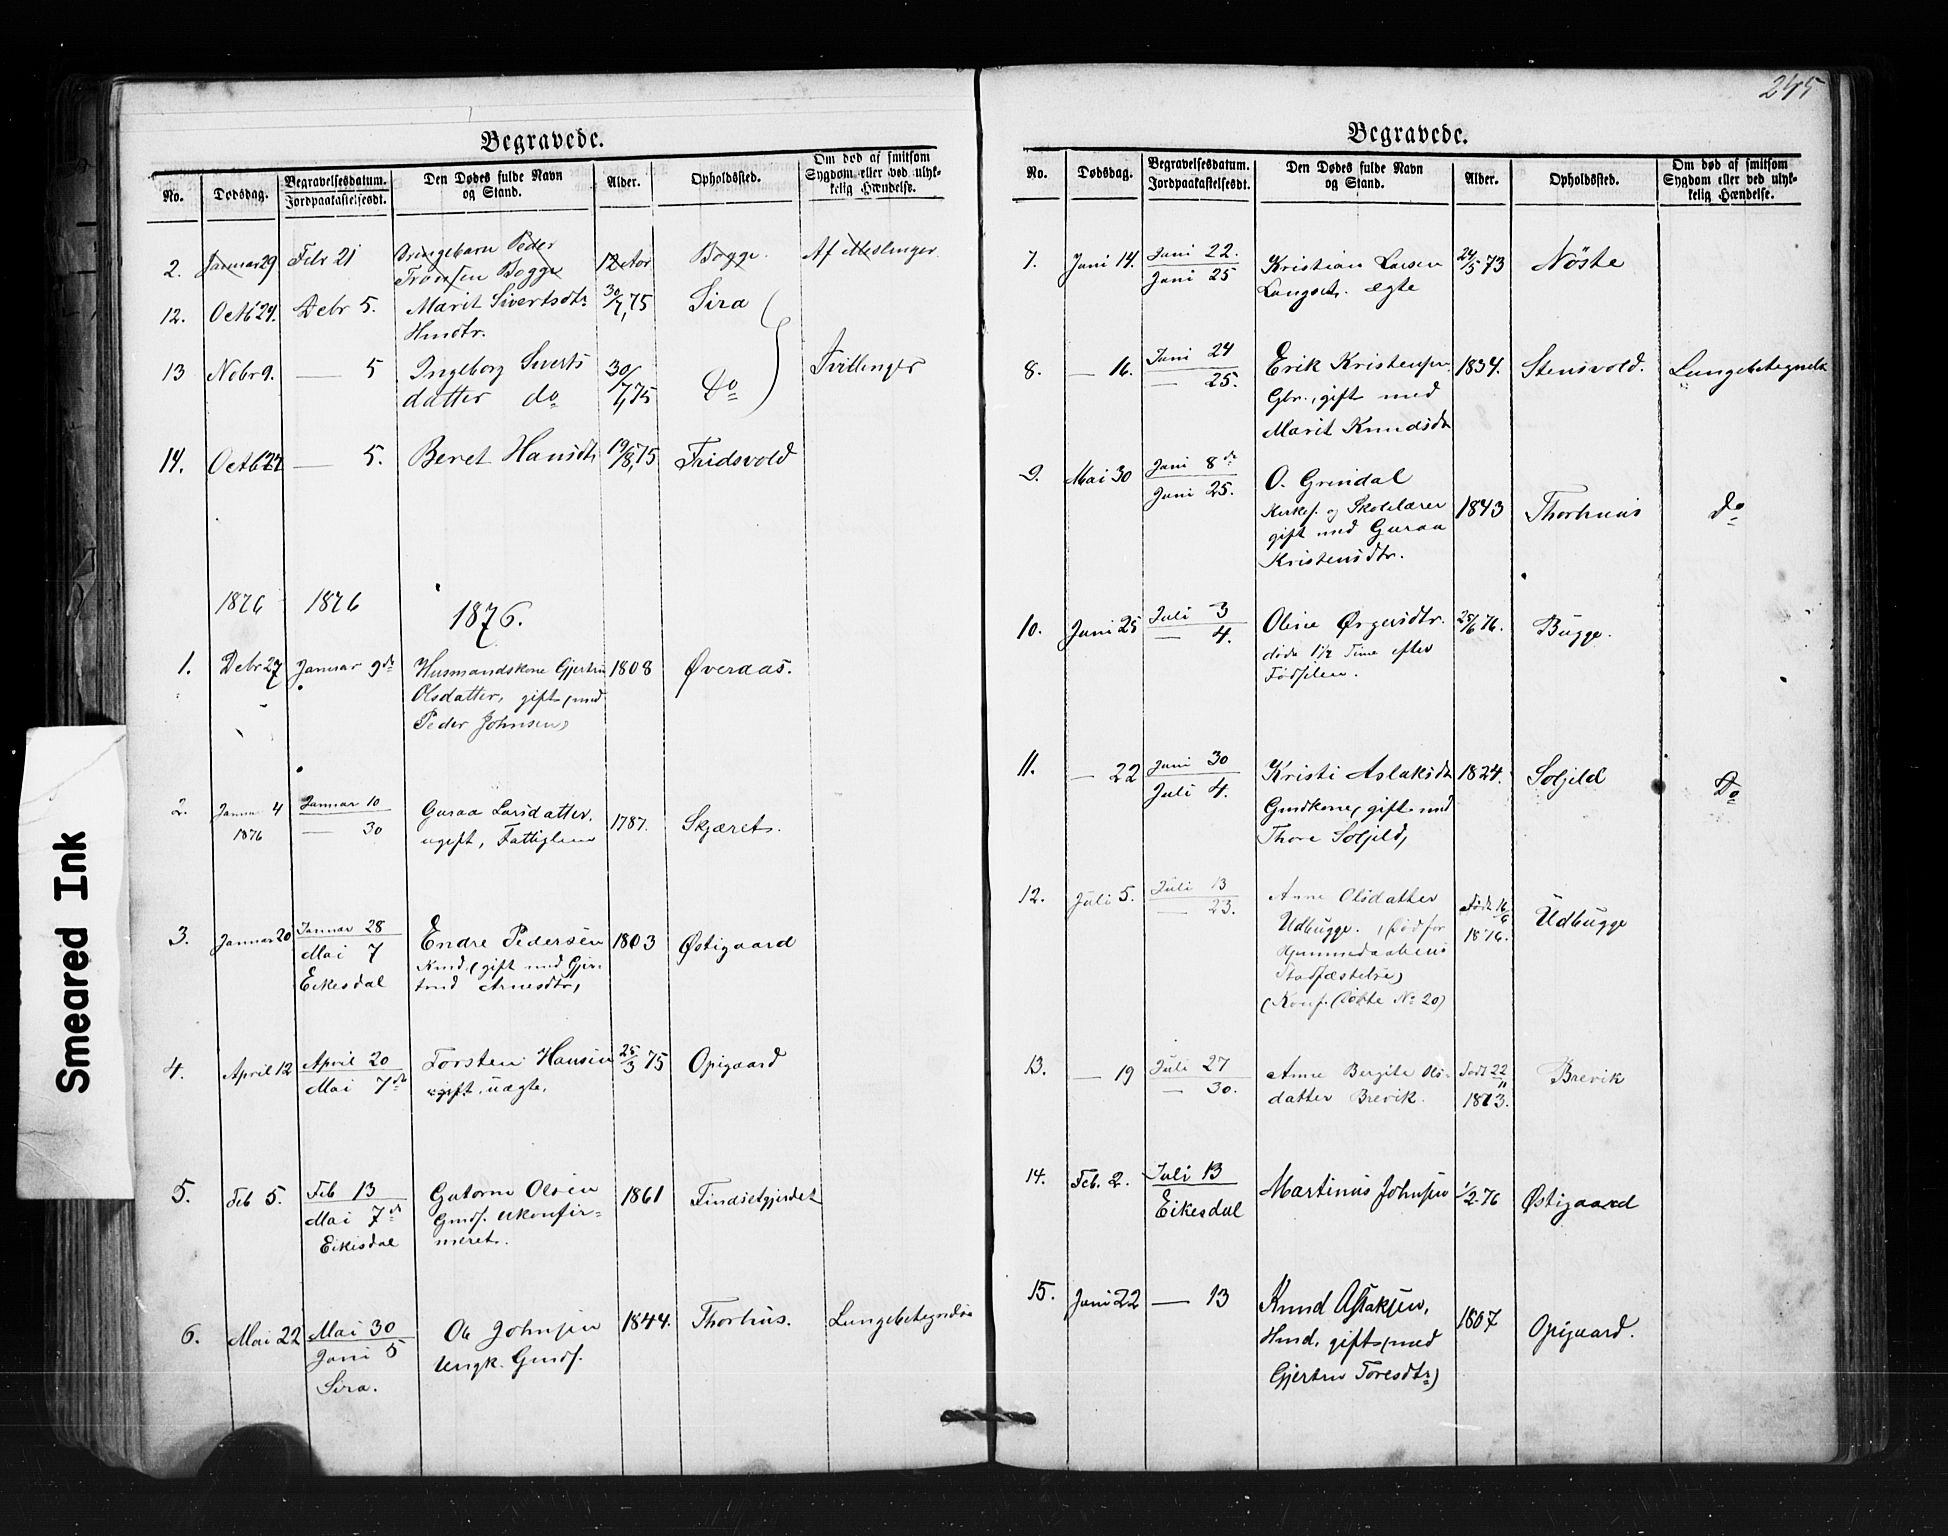 245
Begravede.
No. Dødsdag. Begravelsesdatum. Jordpaakastelsesdt. Den Dødes fulde Navn og Stand. Alder. Opholdssted. Om død af smitsom Sygdom eller ved ulykkelig Hændelse.
2. Januar 29 Febr 21 Drengebarn Peder
Trondsen Bogge 12 Aar Bogge. Af Meslinger
12. Octb 24. Debr 5. Marit Sivertsdtr 30/7, 75 Sira
Hmdtr.
13 Nobr 9. — 5 Ingeborg Siverts 30/7, 75 Do Tvillinger
datter do
14. Octb 22 — 5. Beret Hansdtr 19/8, 75 Fridsvold
1876 1876 1876.
1. Debr 27 Januar 9de Husmandskone Gjertru 1808 Øveraas.
Olsdatter, gift (med
Peder Johnsen)
2. Januar 4 Januar 10 Guraa Larsdatter, 1787. Skjæret.
1876 — 30 ugift, Fattiglem
3. Januar 20 Januar 28 Endre Pedersen 1803 Østigaard
Mai 7 gift med Gjer-
Eikesdal trud Arnesdtr,
4. April 12 April 20 Torsten Hansen 25/3 75 Opigaard
Mai 7de uægte.
5. Feb 5. Feb 13 Gutorm Olsen 1861 Findsetgjerdet
Mai 7de Gmds. ukonfir-
Eikisdal meret.
6. Mai 22 Mai 30 Ole Johnsen 1844. Thorhus. Lungebetegndse
Juni 5 Ungk. Gmds.
Sira.
Begravede.
No. Dødsdag. Begravelsesdatum. Jordpaakastelsesdt. Den Dødes fulde Navn og Stand. Alder. Opholdssted. Om død af smitsom Sygdom eller ved ulykkelig Hændelse.
7. Juni 14. Juni 22. Kristian Larsen 24/5 73 Nöste
Juni 25 Langset. ægte
8. — 16. Juni 24 Erik Kristensen 1834. Stensvold. Lungebetegnelse
— 25. Gbr., gift med
Marit Knudsdtr
9. Mai 30 Juni 8de O. Grindal
Juni 25. Kirkes. og Skolelærer 1843 Thorhuus do
gift med Guraa
Kristensdtr.
10. Juni 25 Juli 3 Oline Ørgersdtr. 25/6 76. Bugge.
— 4. døde 1 1/2 Time efter
Fødselen.
11. — 22 Juni 30 Kristi Aslaksdtr 1824. Soljeld Do
Juli 4. Gmdkone, gift med
Thore Soljeld,
12. Juli 5. Juli 13 Anne Olsdatter Født 16/6 Udbugge
— 23. Udbugge. (Død før 1876.
Hjemmedaabens
Stadfæstelse)
(Konf. Døbte No 20)
13. — 19 Juli 27 Anne Bergite Ols- Født 22/11 Brevik
— 30. datter Brevik. 1873.
14. Feb. 2. Juli 13 Martinus Johnsen 1/2 76 Østigaard
Eikesdal
15. Juni 22 — 13 Knud Aslaksen, 1807 Opigaard.
Hmd. gift (med
Gjertru Toresdtr)
Smeared Ink